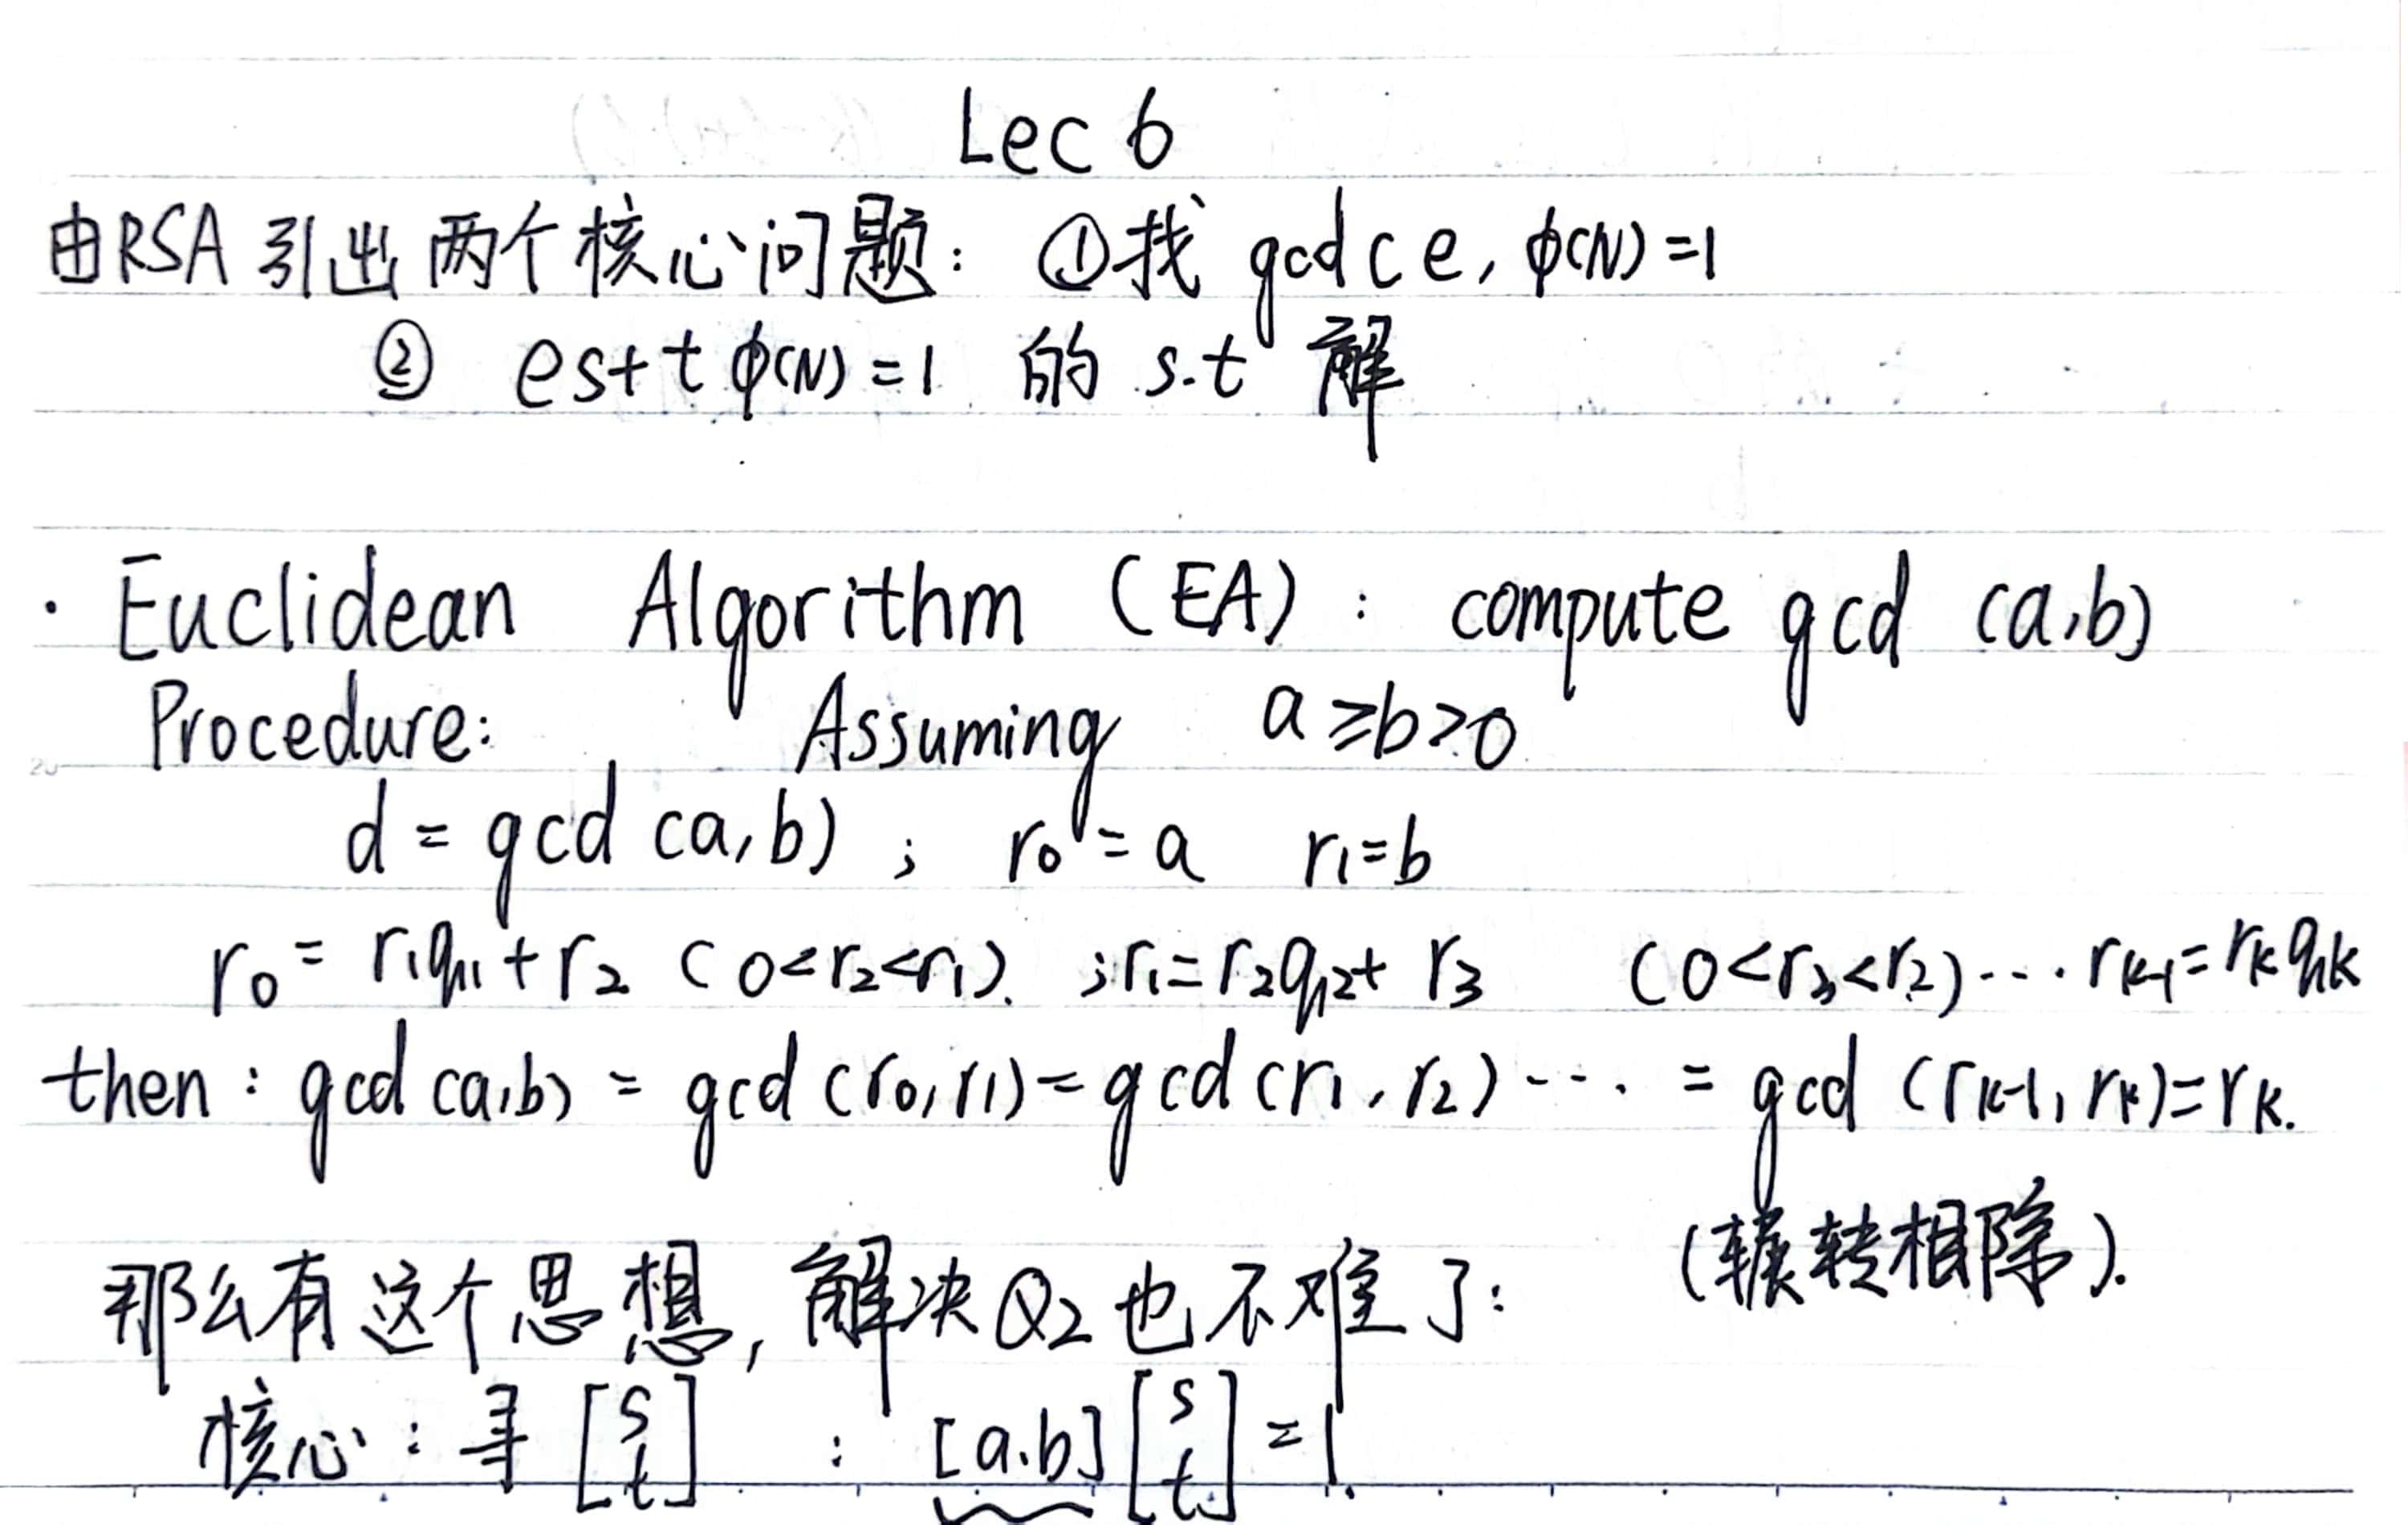 Lec 6
由RSA引出两个核心问题: ①找 gcd(e, φ(N)=1
② es+tφ(N)=1 的 s.t 解
· Euclidean Algorithm (EA) : compute gcd (a,b)
Procedure: Assuming a≥b>0
d = gcd (a,b) ; r₀=a r₁=b
r₀ = r₁q₁+r₂ (0<r₂<r₁). ; r₁=r₂q₂+ r₃ (0<r₃<r₂)···. rₖ₋₁=rₖqₖ
then : gcd (a,b) = gcd (r₀,r₁) = gcd (r₁,r₂) ···. = gcd (rₖ₋₁, rₖ)=rₖ.
(辗转相除).
那么有这个思想, 解决Q2也不难了:
核心: 寻 [s t] : [a.b] [s t] = 1